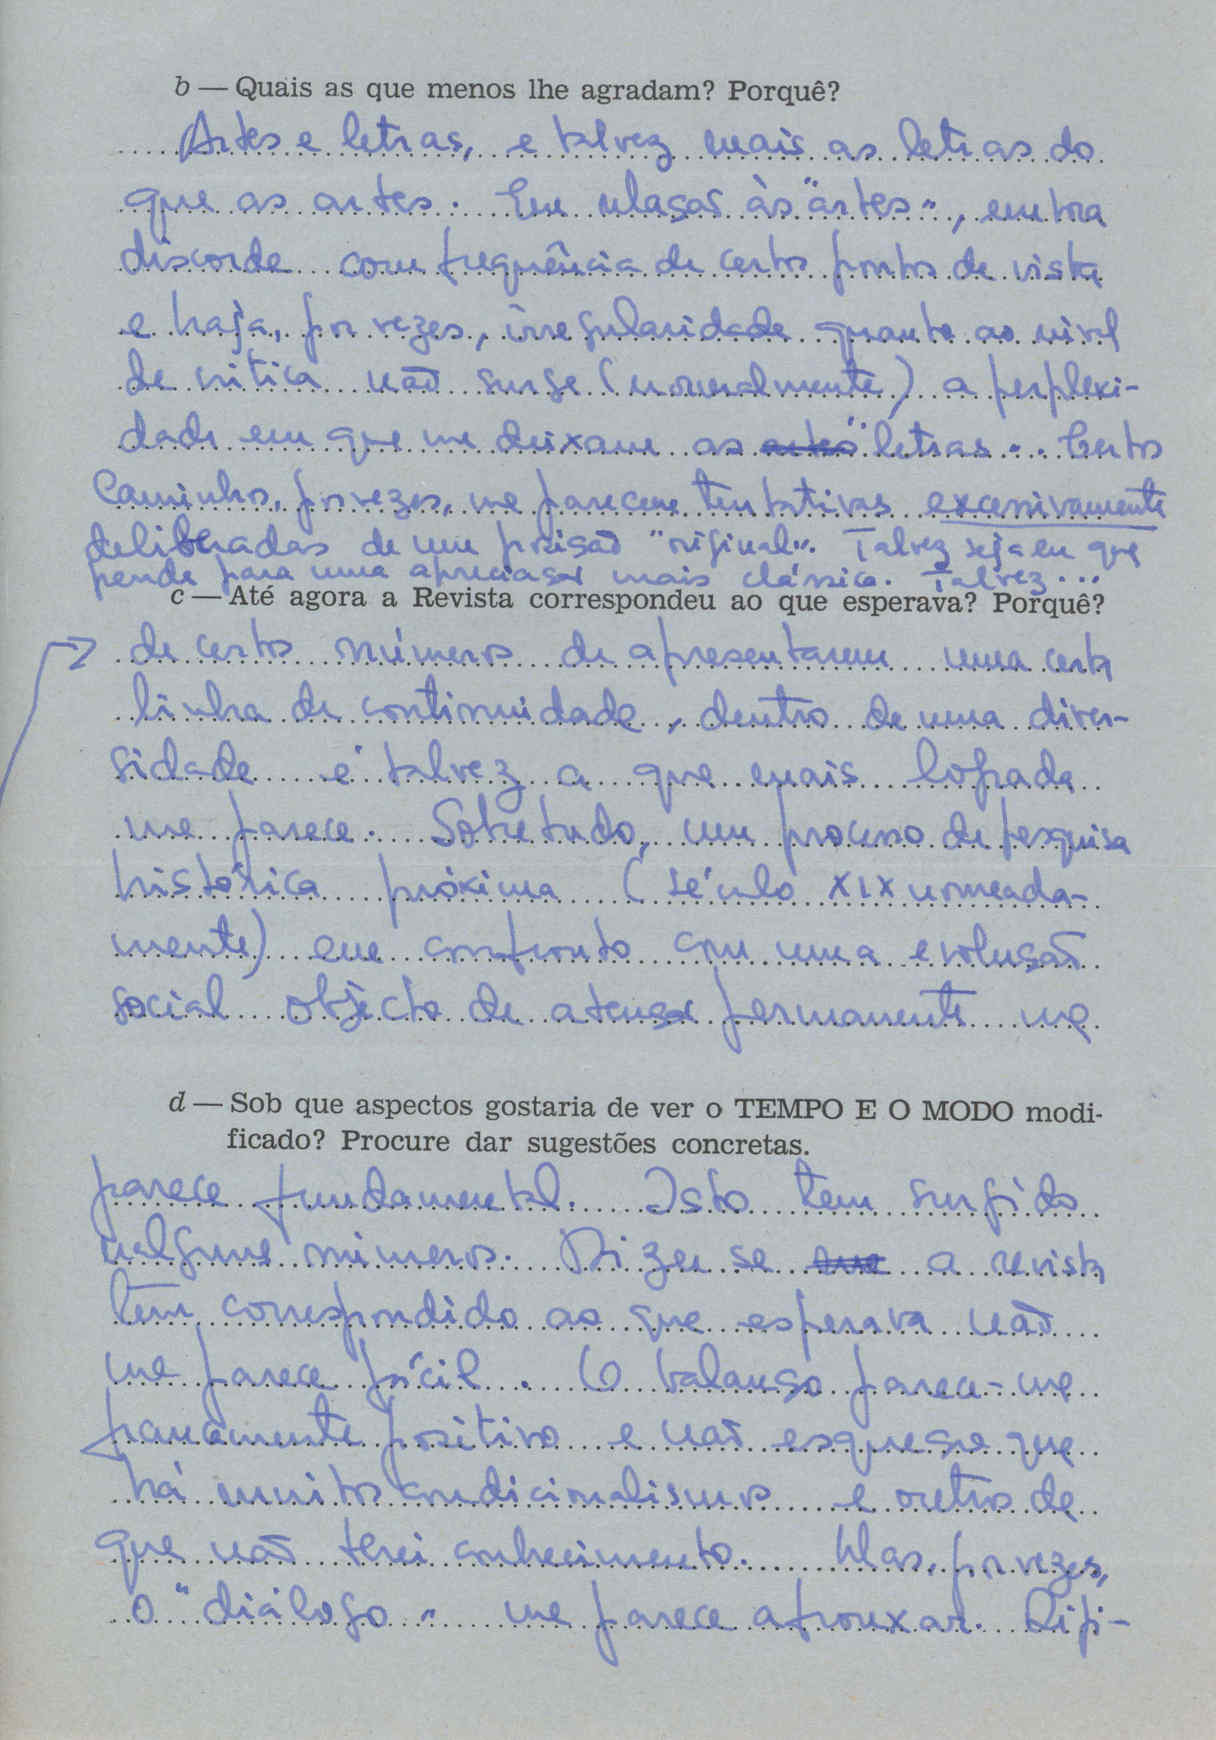 b — Quais as que menos lhe agradam? Porquê?
Artes e letras, e talvez mais as letras do
que as artes. Em relação às "artes", embora
discorde com frequência de certos pontos de vista
e haja, por vezes, irregularidade quanto ao nível
de crítica não surge (normalmente) a perplexi-
dade em que me deixam as artes "letras". Certos
Caminhos, por vezes, me parecem tentativas excessivamente
deliberadas de uma posição "original". Talvez seja eu que
penda para uma apreciação mais clássica. Talvez...
c — Até agora a Revista correspondeu ao que esperava? Porquê?
de certos números de apresentarem uma certa
linha de continuidade, dentro de uma diver-
sidade é talvez a que mais lograda
me parece. Sobretudo, um processo de pesquisa
histórica próxima (século XIX nomeada-
mente) em confronto com uma evolução
social objecto de atenção permanente me
d — Sob que aspectos gostaria de ver o TEMPO E O MODO modi-
ficado? Procure dar sugestões concretas.
parece fundamental. Isto tem surgido
nalguns números. Dizer se a revista
tem correspondido ao que esperava não
me parece fácil. O balanço parece-me
francamente positivo e não esqueço que
há muitos condicionalismos e outros de
que não terei conhecimento. Mas, por vezes,
o "diálogo" me parece afrouxar. Rigi-